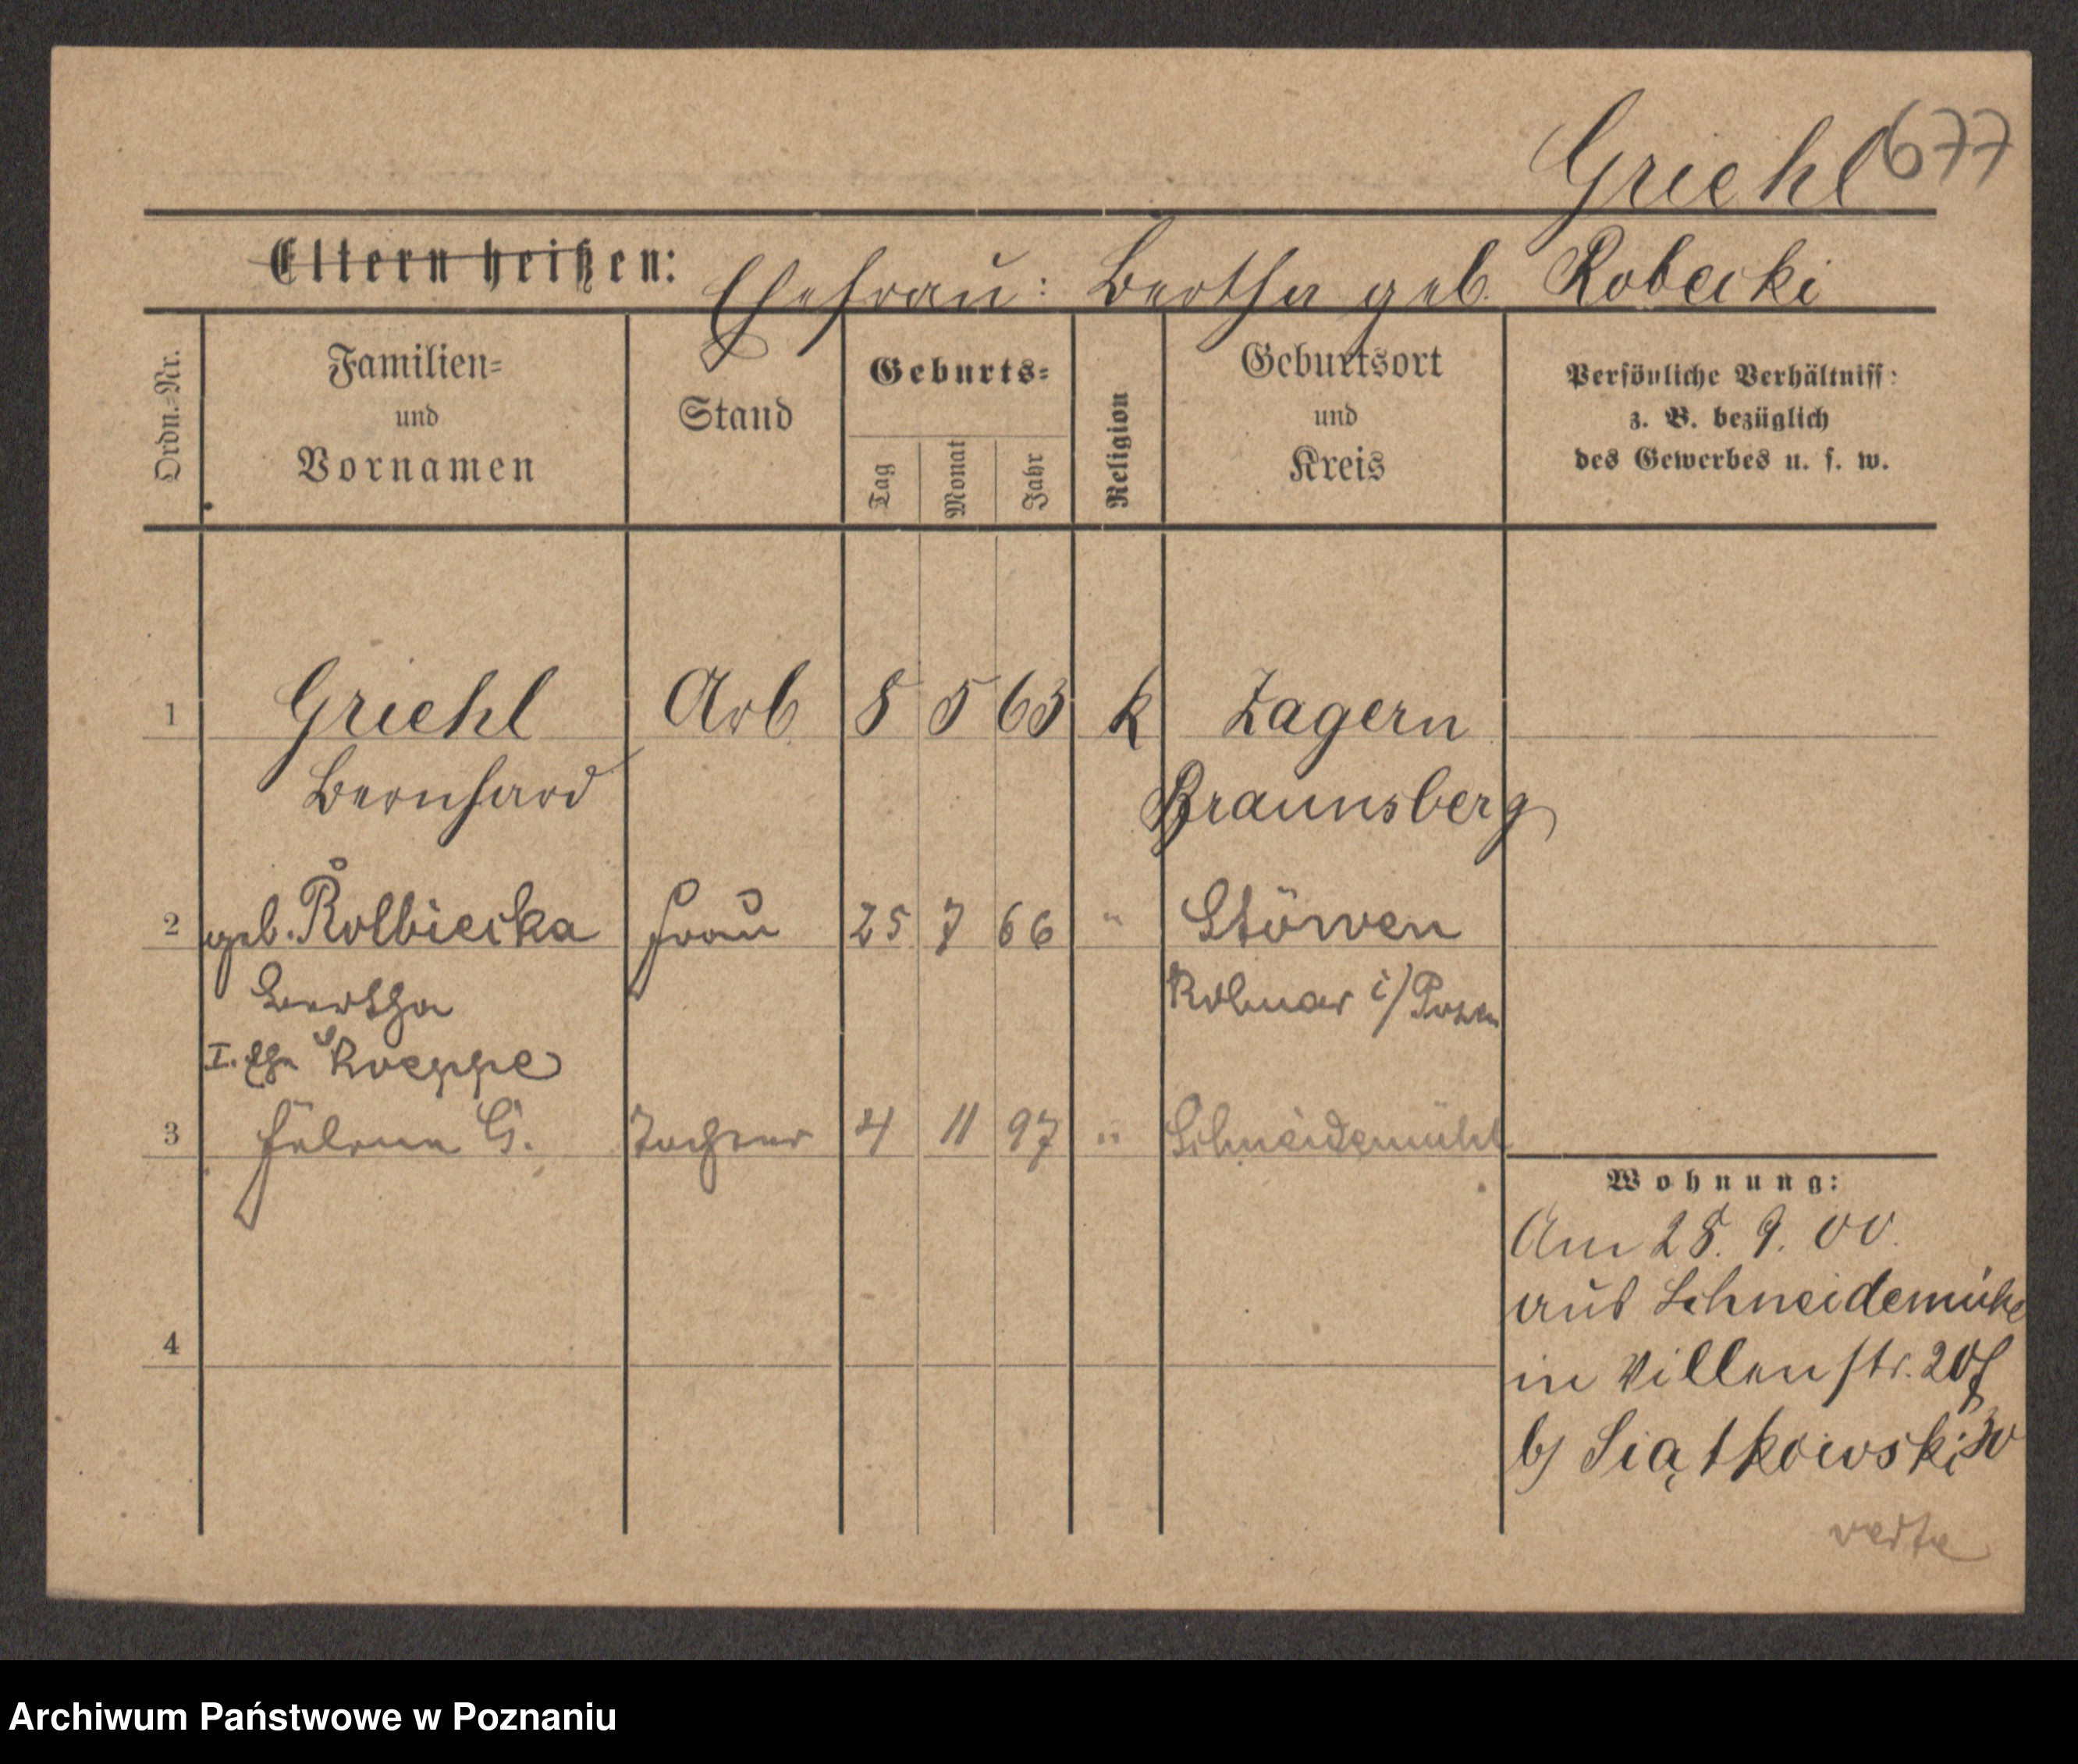 Griehl 677
Eltern heißen: Ehefrau: Bertha geb. Robecki
Ordn.-Nr.
Familien=
und
Vornamen
Stand
Geburts=
Tag
Monat
Jahr
Religion
Geburtsort
und
Kreis
Persönliche Verhältniss:
z. B. bezüglich
des Gewerbes u. s. w.
1 Griehl Arb 8 5 63 k Zagern
Bernhard Braunsberg
2 geb. Rolbiecka Frau 25 7 66 " Stöwen
Bertha Kolmar i/Posen
I. Ehe Koeppe
3 G. Tochter 4 11 97 " Schneidemühl
Wohnung:
Am 28. 9. 00.
aus Schneidemühl
in Villenstr. 20
4
b/ Siątkowski
verte
Archiwum Państwowe w Poznaniu